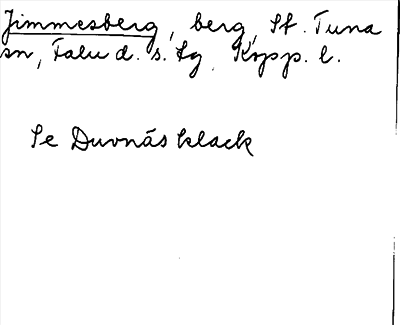 Jimmesberg, berg, St. Tuna
sn, Falu d. s. lg Kopp. l.
Se Duvnäs klack